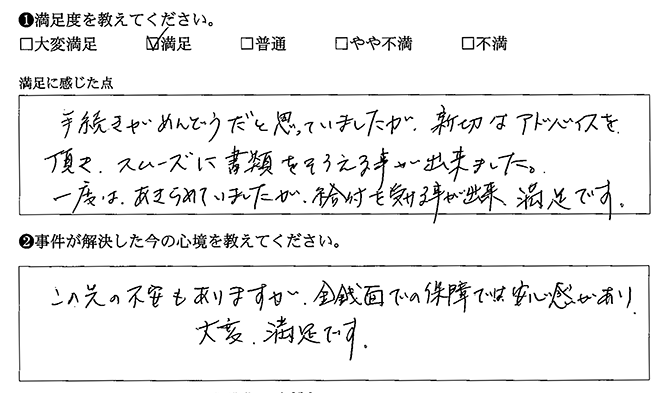 ❶満足度を教えてください。
□大変満足 ☑満足 □普通 □やや不満 □不満
満足に感じた点
手続きがめんどうだと思っていましたが、新切なアドバイスを
頂き、スムーズに書類をそろえる事が出来ました。
一度は、あきらめていましたが、給付を受ける事が出来、満足です。
❷事件が解決した今の心境を教えてください。
この先の不安もありますが、金銭面での保障では安心感があり
大変、満足です。